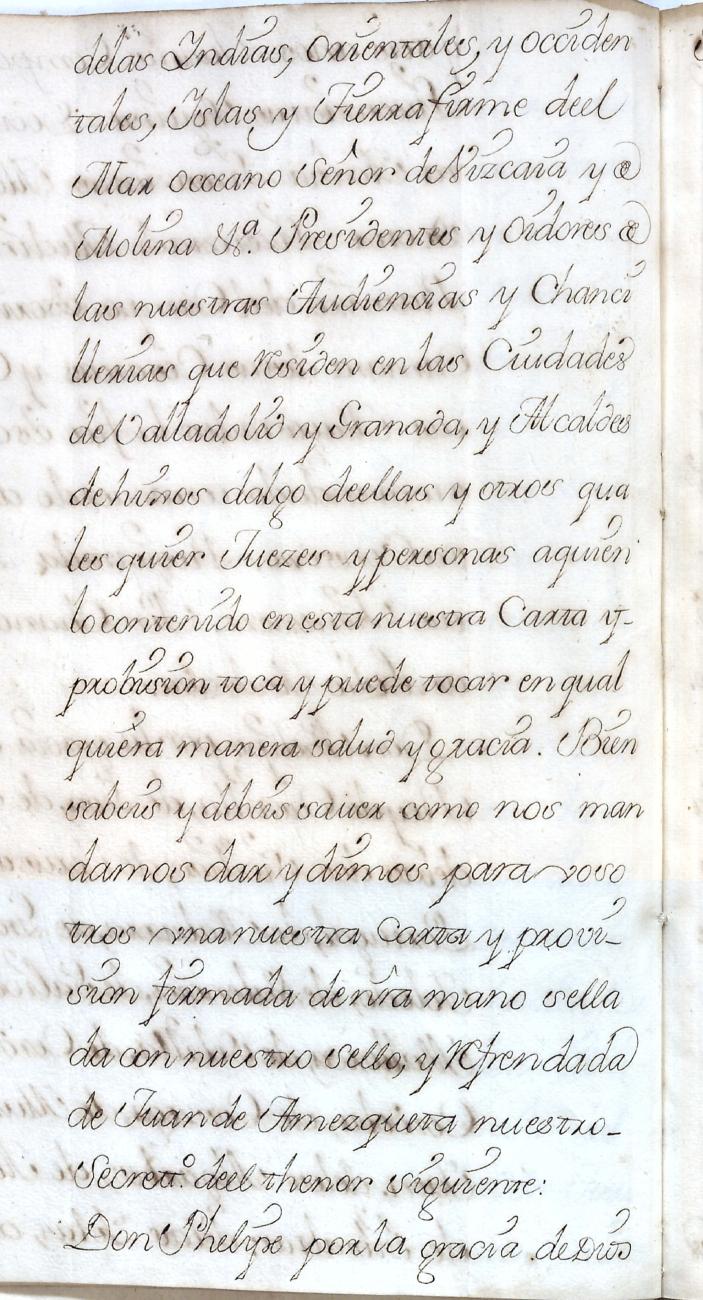 delas Indias, Orientales, y occiden
tales, Islas, y Tierra firme deel
Mar occeano Señor de Vizcaia y de
Molina &ª. Presidentes y oidores de
las nuestras Audiencias y Chanci
llerias que Residen en las Ciudades
de Valladolid y Granada, y Alcaldes
de hixos dalgo deellas y otros qua
les quier Juezes y personas aquien
lo contenido en esta nuestra Carta y-
probision toca y puede tocar en qual
quiera manera salud y gracia. Bien
sabeis y debeis sauer como nos man
damos dar y dimos para voso
tros vna nuestra Carta y provi-
sion firmada de nra mano sella
da con nuestro sello, y Refrendada
de Juan de Amezqueta nuestro-
Secrettº. deel thenor siguiente:
Don Phelipe por la gracia de Dios